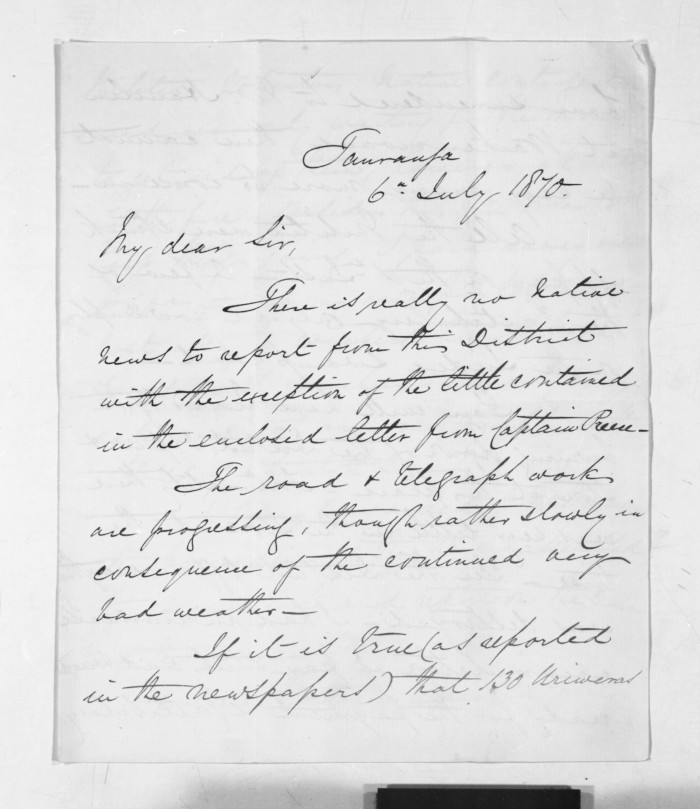 Tauranga
6th July 1870.
My dear Sir,
There is really no native
news to report from this District
with the exception of the little contained
in the enclosed letter from Captain Preece—
The road & telegraph works
are progressing, though rather slowly in
consequence of the continued very
bad weather—
If it is true (as reported
in the newspapers) that 130 Uriweras